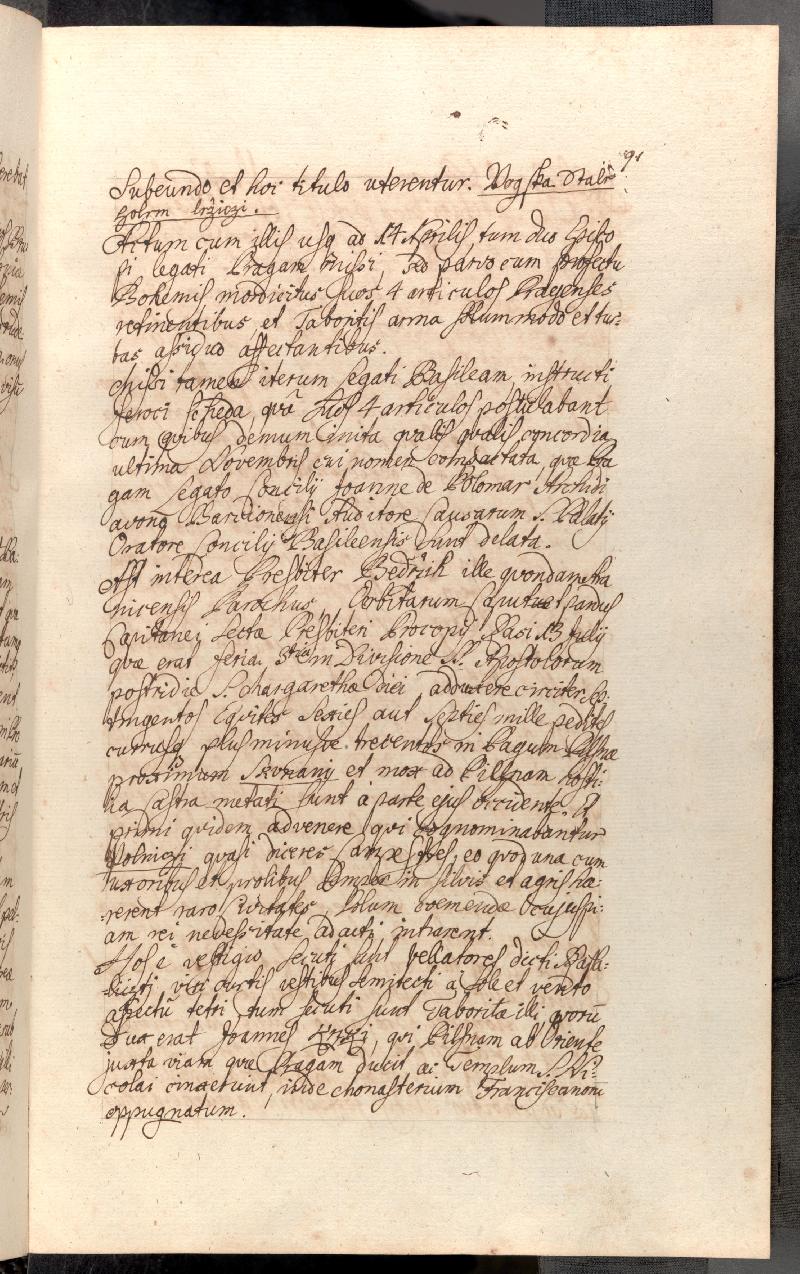 91
Subeundo et hoc titulo uterentur.
Actum cum illis usq ad 14 Aprilis, tum duo Episco
pi legati Pragam missi, sed parvo cum profectu
Bohemis mordicitus suos 4 articulos Pragenses
retinentibus, et Taboritis arma solummodo et tur:
bas assiduo affectantibus.
Missi tamen iterum legati Basileam, instructi
feroci scheda, qvâ suos 4 articulos postulabant
cum qvibus demum inita qvalis qvalis concordia
ultima Novembris cui nomen compactata, qvæ Pra
gam legato Concilij Joanne de Polomar Archidi
acono Barcionensi Auditore Causarum S. Palatij
Oratore Concilij Basileensis sunt delata.
Ast interea Presbiter Bedrzich ille qvondam
nicensis Parochus, Orbitarum Caput et
Capitanei sectæ Presbiteri Procopij Rasi 13 Julij
qvæ erat feria 3tia in Divisione SS. Apostolorum
postridie S. Margarethæ diei, adduxere circiter
tingentos Eqvites sexies aut septies mille pedites
currusq plus minusve trecentos in Pagum Pilsnæ
proximum Skvrnany et mox ad Pilsnam hosti:
lia Castra metati sunt à parte ejus occidente. Et
primi qvidem advenere, qvi cognominabantur
Polniczi qvasi diceres campestres, eo qvod una cum
uxoribus et prolibus semper in silvis et agris hæ:
rerent raro Civitates, solum
am rei necessitate adacti intrarent.
Hos è vestigio secuti sunt bellatores dicti
viri curtis vestibus semitecti a sole et vento
aspectu tetri, tum secuti sunt Taboritæ illi qvorū
Dux erat Joannes qvi Pilsnam ab Oriente
juxta viam qvæ Pragam ducit, ac Templum S. Ni:
colai cingerunt, inde Monasterium Franciscanorū
oppugnatum.